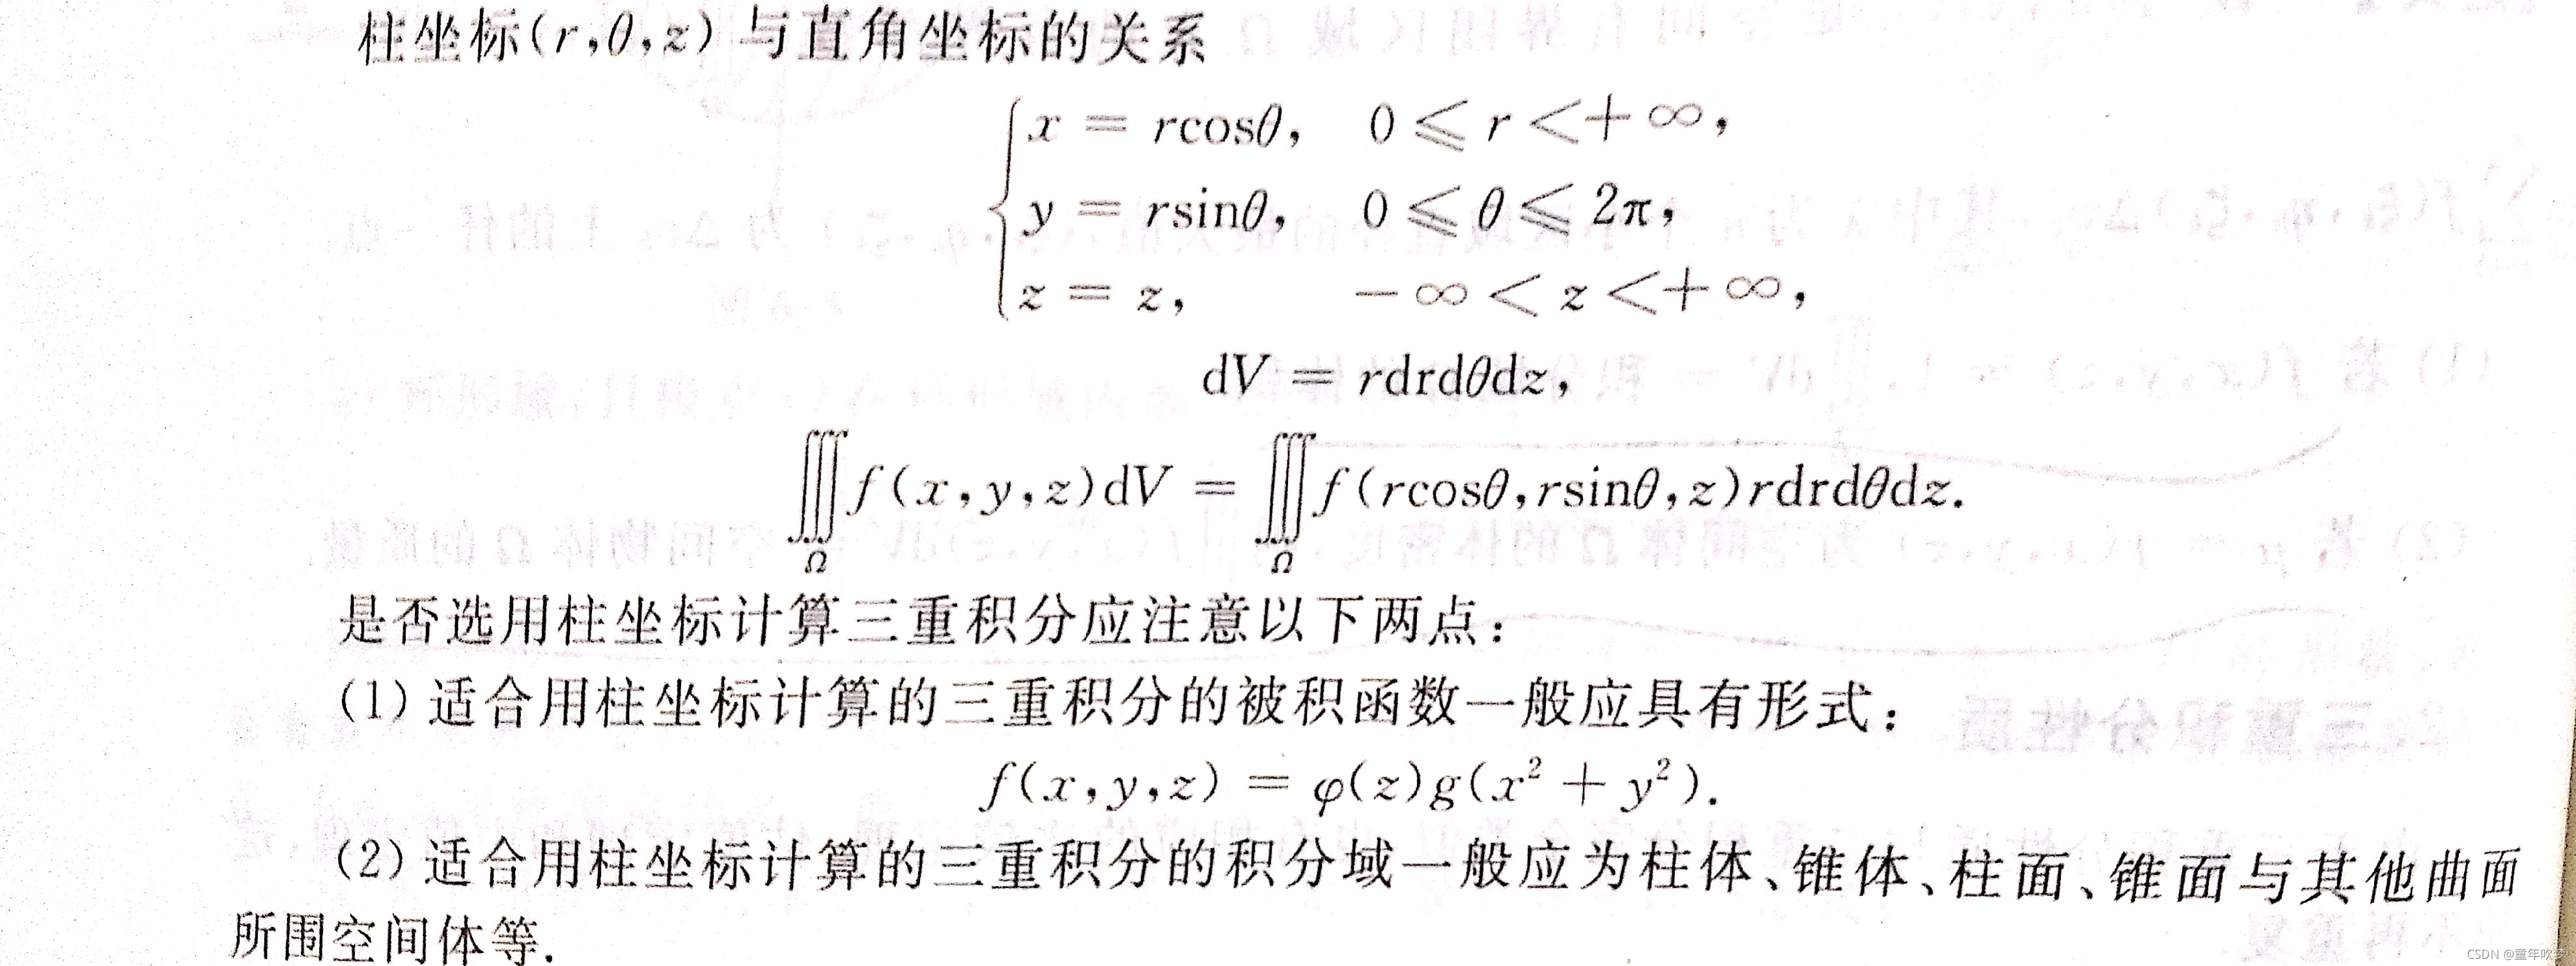 柱坐标(r,θ,z)与直角坐标的关系
x = rcosθ, 0 ⩽ r < + ∞,
y = rsinθ, 0 ⩽ θ ⩽ 2π,
z = z, − ∞ < z < + ∞,
dV = rdrdθdz,
∭_Ω f(x,y,z)dV = ∭_Ω f(rcosθ,rsinθ,z)rdrdθdz.
是否选用柱坐标计算三重积分应注意以下两点:
(1) 适合用柱坐标计算的三重积分的被积函数一般应具有形式:
f(x,y,z) = φ(z)g(x² + y²).
(2) 适合用柱坐标计算的三重积分的积分域一般应为柱体、锥体、柱面、锥面与其他曲面
所围空间体等.
CSDN @童年吹